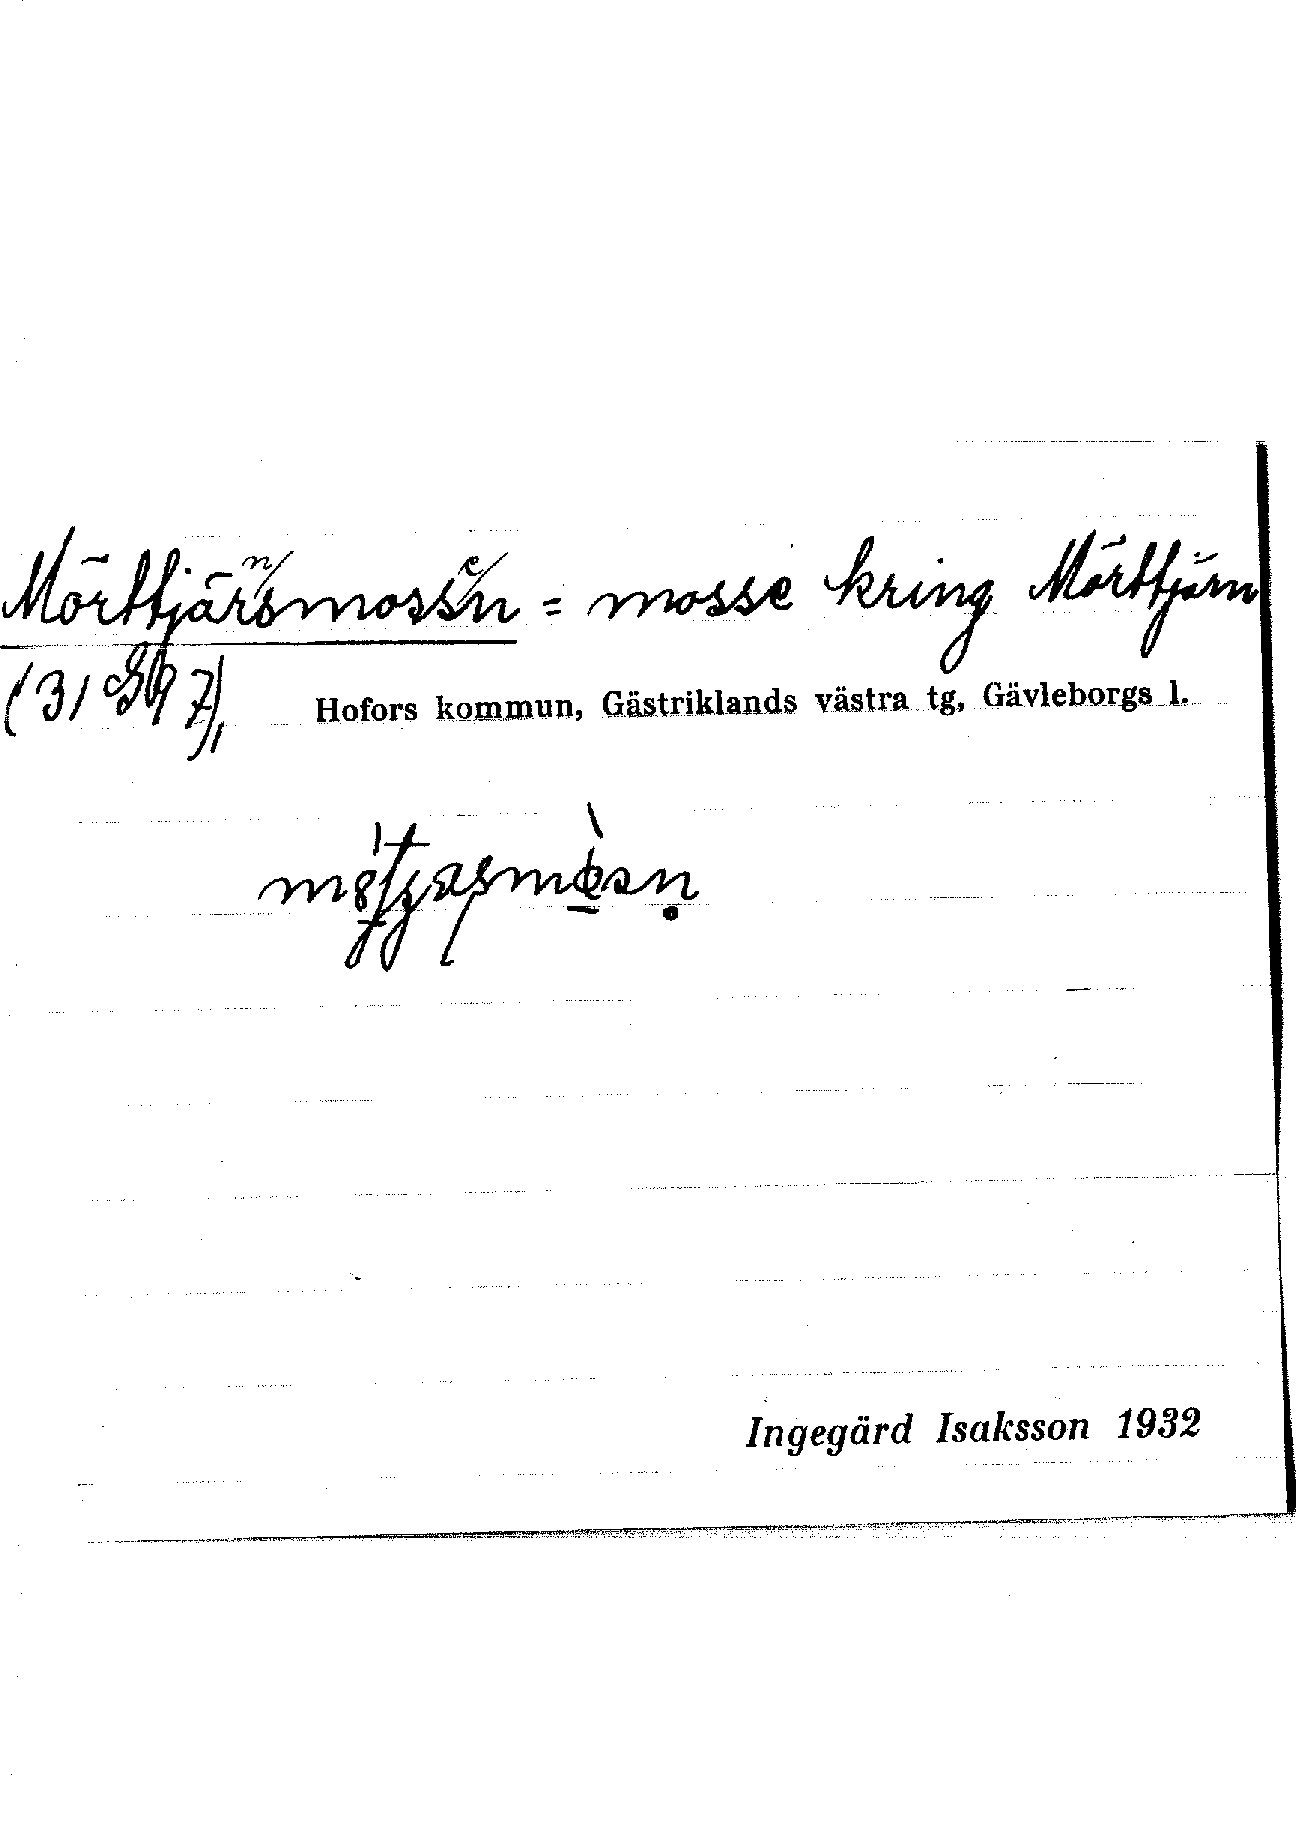 Mörttjärnsmossen = mosse kring Mörttjärn
Hofors kommun, Gästriklands västra tg, Gävleborgs l.
Ingegärd Isaksson 1932